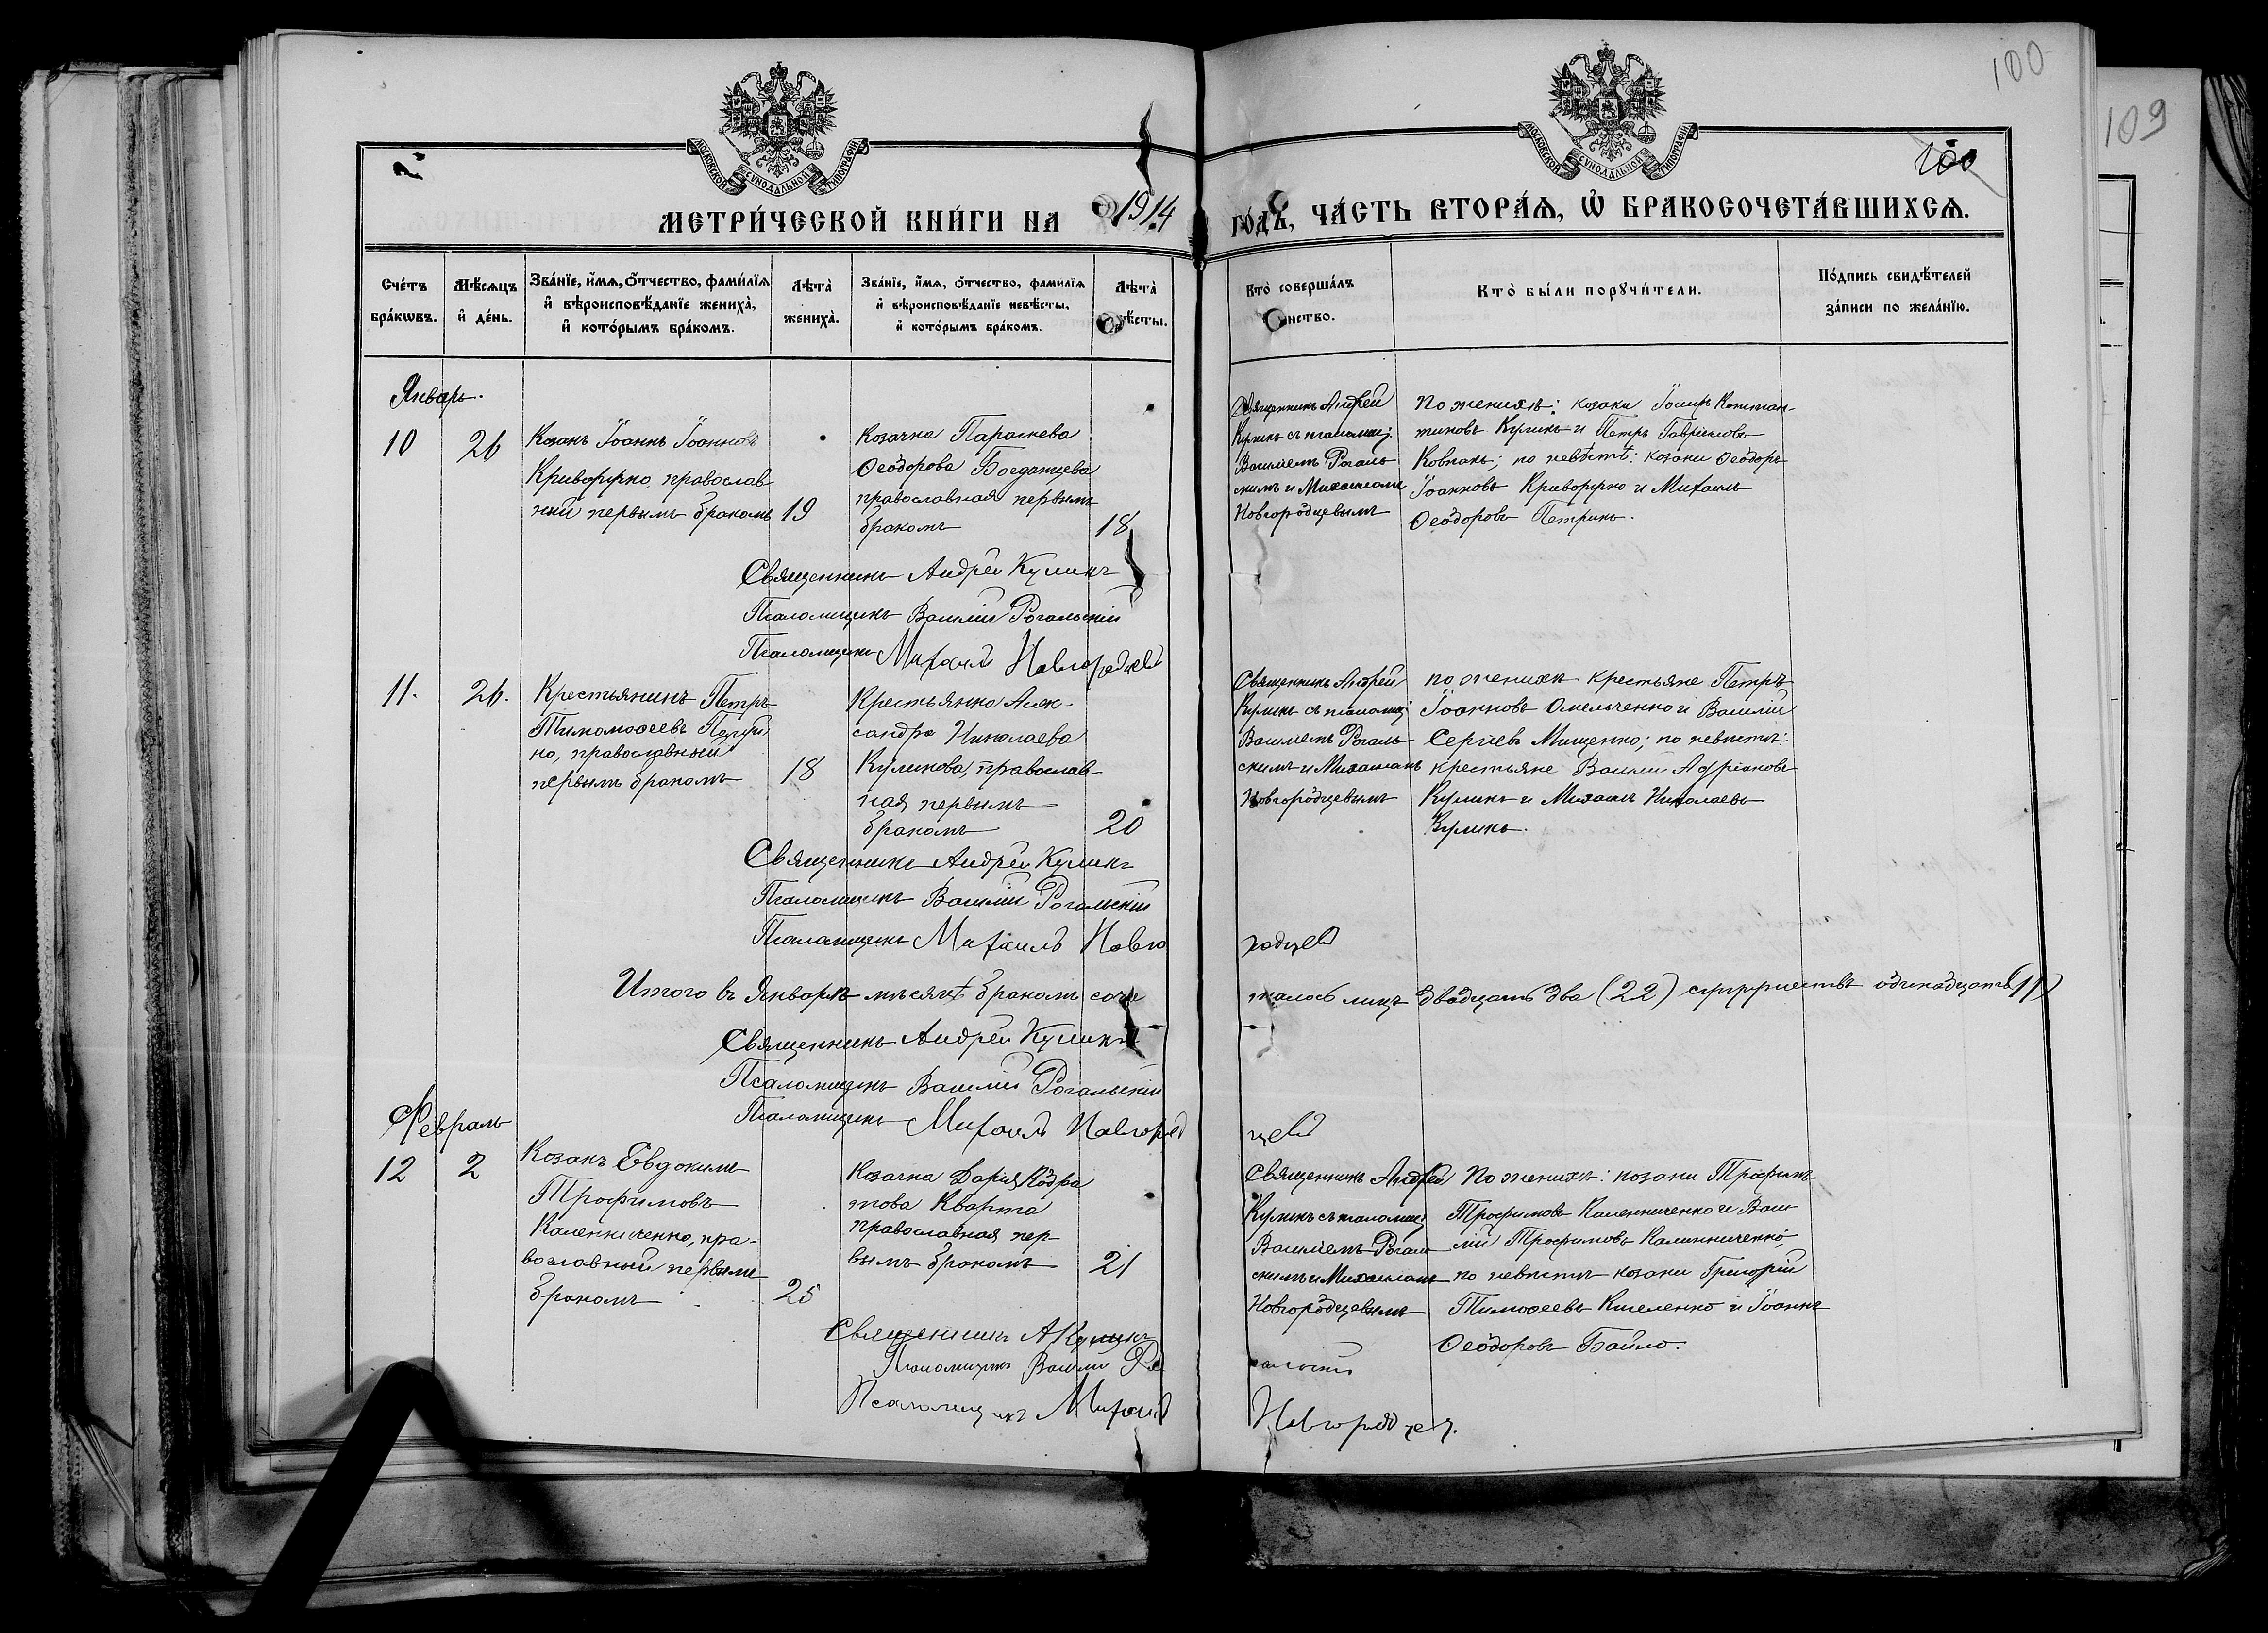 100
109
100
МОСКОВСКОЙ СѴНОДАЛЬНОЙ ТИПОГРАФІИ
МОСКОВСКОЙ СѴНОДАЛЬНОЙ ТИПОГРАФІИ
МЕТРИ́ЧЕСКОЙ КНИ́ГИ НА 1914 ГО́ДЪ, ЧА́СТЬ ВТОРА́Ѧ, Ѡ҆ БРАКОСОЧЕТА́ВШИХСѦ.
Сче́тъ бра́кѡвъ.
Мѣ́сѧцъ и҆ де́нь.
Зва́нїе, и҆́мѧ, ѻ҆́тчество, фами́лїѧ и҆ вѣроисповѣ́данїе жениха̀, и҆ кото́рымъ бра́комъ.
Лѣ́та̀ жениха̀.
Зва́нїе, и҆́мѧ, ѻ҆́тчество, фами́лїѧ и҆ вѣроисповѣ́данїе невѣ́сты, и҆ кото́рымъ бра́комъ.
Лѣ́та̀ вѣ́сты.
Кто̀ соверша́лъ инство.
Кто̀ бы́ли порꙋчи́тели.
По́дпись свидѣ́телей за́писи по жела́нїю.
Январь.
10
26
Козакъ Іоаннъ Іоанновъ
Криворучко, православ
ный первымъ бракомъ
19
Козачка Параскева
Ѳеодорова Богданцева
православная первымъ
бракомъ
18
Священникъ Андрей
Куликъ съ псаломщ.
Василіемъ Рогаль
скимъ и Михаиломъ
Новгородцевымъ
По женихѣ: козаки Іосифъ Констан-
тиновъ Куликъ и Петръ Гавріиловъ
Ковпакъ; по невѣстѣ: козаки Ѳеодоръ
Іоанновъ Криворучко и Михаилъ
Ѳеодоровъ Петрикъ.
Священникъ Андрей Куликъ
Псаломщикъ Василій Рогальскій
Псаломщикъ Михаилъ Новгородцевъ
11.
26.
Крестьянинъ Петръ
Тимоѳеевъ
но, православный
первымъ бракомъ
18
Крестьянка Алек-
сандра Николаева
Куликова, православ-
ная первымъ
бракомъ
20
Священникъ Андрей
Куликъ съ псаломщ
Василіемъ Рогаль
скимъ и Михаиломъ
Новгородцевымъ
по женихѣ крестьяне Петръ
Іоанновъ Омельченко и Василій
Сергіевъ Мищенко; по невѣстѣ:
крестьяне Василій Адріановъ
Куликъ и Михаилъ Николаевъ
Куликъ.
Священникъ Андрей Куликъ
Псаломщикъ Василій Рогальскій
Псаломщикъ Михаилъ Новго родцевъ
Итого въ Январѣ мѣсяцѣ бракомъ соче талось лицъ двадцать два (22) супружествъ одинадцать (11)
Священникъ Андрей Куликъ
Псаломщикъ Василій Рогальскій
Псаломщикъ Михаилъ Новгород цевъ
Февраль
12
2
Козакъ Евдокимъ
Трофимовъ
Каленниченко, пра-
вославный первымъ
бракомъ
25
Козачка Дарія Кодра
това Кварта
православная пер
вымъ бракомъ
21
Священникъ Андрей
Куликъ съ псаломщ
Василіемъ Рогаль
скимъ и Михаиломъ
Новгородцевымъ
По женихѣ: козаки Трофимъ
Трофимовъ Каленниченко и Васи
лій Трофимовъ Калинниченко;
по невѣстѣ козаки Григорій
Тимоѳеевъ Киселенко и Іоаннъ
Ѳеодоровъ Байло.
Священникъ А Куликъ
Псаломщикъ Василій Ро гальскій
Псаломщикъ Михаилъ Новгородцевъ.